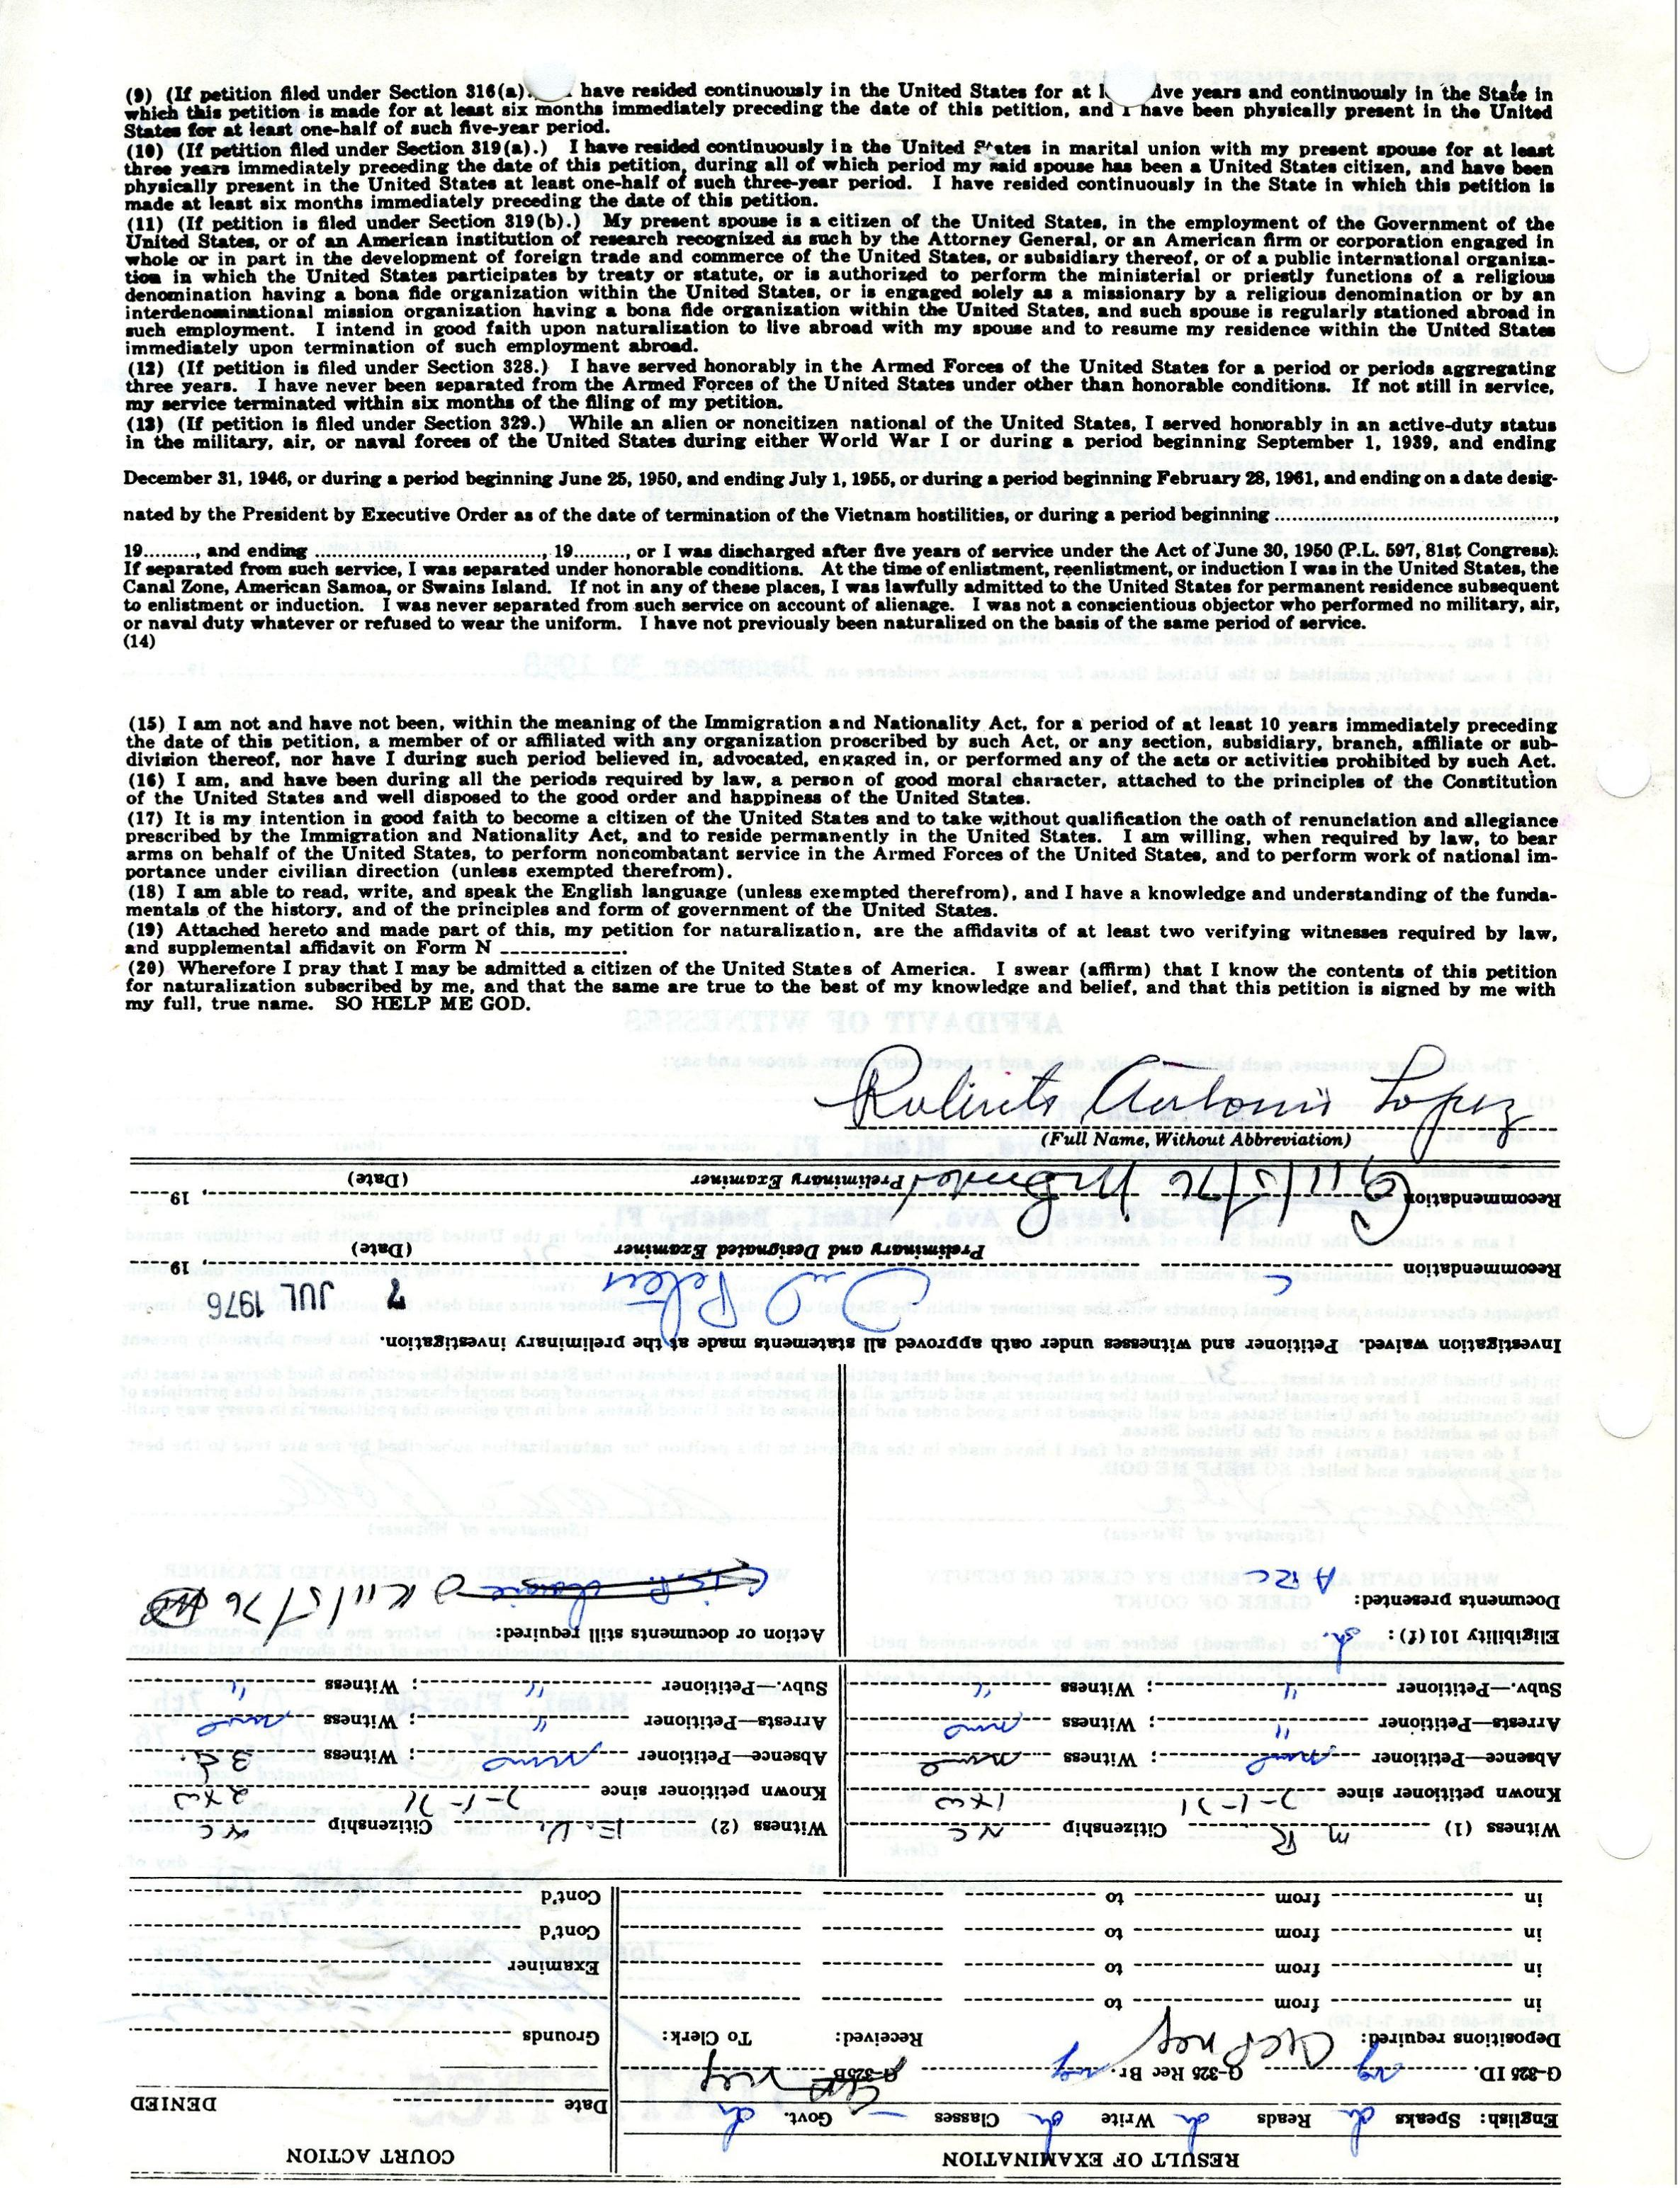 (9) (If petition filed under Section 316(a). have resided continuously in the United States for at ive years and continuously in the State in
which this petition is made for at least six months immediately preceding the date of this petition, and I have been physically present in the United
States for at least one-half of such five-year period.
(10) (If petition filed under Section 319(a).) I have resided continuously in the United States in marital union with my present spouse for at least
three years immediately preceding the date of this petition, during all of which period my said spouse has been a United States citizen, and have been
physically present in the United States at least one-half of such three-year period. I have resided continuously in the State in which this petition is
made at least six months immediately preceding the date of this petition.
(11) (If petition is filed under Section 319(b).) My present spouse is a citizen of the United States, in the employment of the Government of the
United States, or of an American institution of research recognized as such by the Attorney General, or an American firm or corporation engaged in
whole or in part in the development of foreign trade and commerce of the United States, or subsidiary thereof, or of a public international organiza-
tion in which the United States participates by treaty or statute, or is authorized to perform the ministerial or priestly functions of a religious
denomination having a bona fide organization within the United States, or is engaged solely as a missionary by a religious denomination or by an
interdenominational mission organization having a bona fide organization within the United States, and such spouse is regularly stationed abroad in
such employment. I intend in good faith upon naturalization to live abroad with my spouse and to resume my residence within the United States
immediately upon termination of such employment abroad.
(12) (If petition is filed under Section 328.) I have served honorably in the Armed Forces of the United States for a period or periods aggregating
three years. I have never been separated from the Armed Forces of the United States under other than honorable conditions. If not still in service,
my service terminated within six months of the filing of my petition.
(13) (If petition is filed under Section 329.) While an alien or noncitizen national of the United States, I served honorably in an active-duty status
in the military, air, or naval forces of the United States during either World War I or during a period beginning September 1, 1939, and ending
December 31, 1946, or during a period beginning June 25, 1950, and ending July 1, 1955, or during a period beginning February 28, 1961, and ending on a date desig-
nated by the President by Executive Order as of the date of termination of the Vietnam hostilities, or during a period beginning ........................,
19........, and ending ........................, 19........, or I was discharged after five years of service under the Act of June 30, 1950 (P.L. 597, 81st Congress).
If separated from such service, I was separated under honorable conditions. At the time of enlistment, reenlistment, or induction I was in the United States, the
Canal Zone, American Samoa, or Swains Island. If not in any of these places, I was lawfully admitted to the United States for permanent residence subsequent
to enlistment or induction. I was never separated from such service on account of alienage. I was not a conscientious objector who performed no military, air,
or naval duty whatever or refused to wear the uniform. I have not previously been naturalized on the basis of the same period of service.
(14)
(15) I am not and have not been, within the meaning of the Immigration and Nationality Act, for a period of at least 10 years immediately preceding
the date of this petition, a member of or affiliated with any organization proscribed by such Act, or any section, subsidiary, branch, affiliate or sub-
division thereof, nor have I during such period believed in, advocated, engaged in, or performed any of the acts or activities prohibited by such Act.
(16) I am, and have been during all the periods required by law, a person of good moral character, attached to the principles of the Constitution
of the United States and well disposed to the good order and happiness of the United States.
(17) It is my intention in good faith to become a citizen of the United States and to take without qualification the oath of renunciation and allegiance
prescribed by the Immigration and Nationality Act, and to reside permanently in the United States. I am willing, when required by law, to bear
arms on behalf of the United States, to perform noncombatant service in the Armed Forces of the United States, and to perform work of national im-
portance under civilian direction (unless exempted therefrom).
(18) I am able to read, write, and speak the English language (unless exempted therefrom), and I have a knowledge and understanding of the funda-
mentals of the history, and of the principles and form of government of the United States.
(19) Attached hereto and made part of this, my petition for naturalization, are the affidavits of at least two verifying witnesses required by law,
and supplemental affidavit on Form N ____________.
(20) Wherefore I pray that I may be admitted a citizen of the United States of America. I swear (affirm) that I know the contents of this petition
for naturalization subscribed by me, and that the same are true to the best of my knowledge and belief, and that this petition is signed by me with
my full, true name. SO HELP ME GOD.
Roberto Antonio Lopez
(Full Name, Without Abbreviation)
RESULT OF EXAMINATION
COURT ACTION
English: Speaks Reads Write Classes Govt.
DENIED
G-325 ID. G-325 Rec Br. G-325B
Date
Depositions required: Received: To Clerk:
Grounds
in from to
in from to
Examiner
in from to
Cont'd
in from to
Cont'd
Witness (1) M R Citizenship N C
Known petitioner since 7-1-71
Absence—Petitioner none; Witness none
Arrests—Petitioner "; Witness none
Subv.—Petitioner "; Witness "
Eligibility 101 (f):
Documents presented: ARC
Witness (2) E. V. Citizenship
Known petitioner since 7-1-71
Absence—Petitioner none; Witness
Arrests—Petitioner "; Witness none
Subv.—Petitioner "; Witness "
Action or documents still required:
OK 11/5/76
Investigation waived. Petitioner and witnesses under oath approved all statements made at the preliminary investigation.
7 JUL 1976
Recommendation , 19
Preliminary and Designated Examiner (Date)
Recommendation 11/5/76 , 19
Preliminary Examiner (Date)